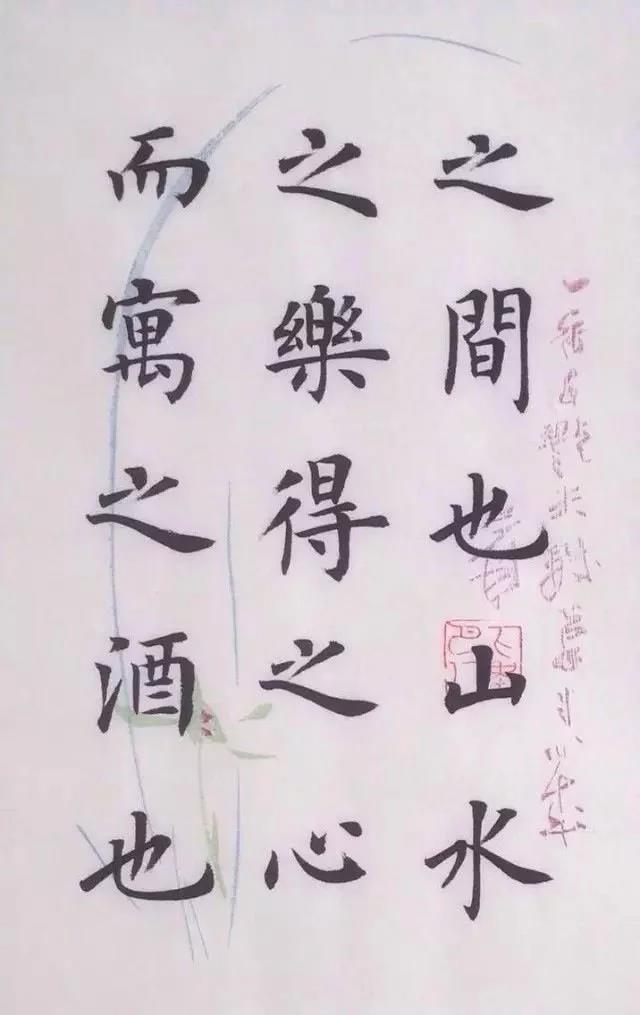 之間也山水
之樂得之心
而寓之酒也